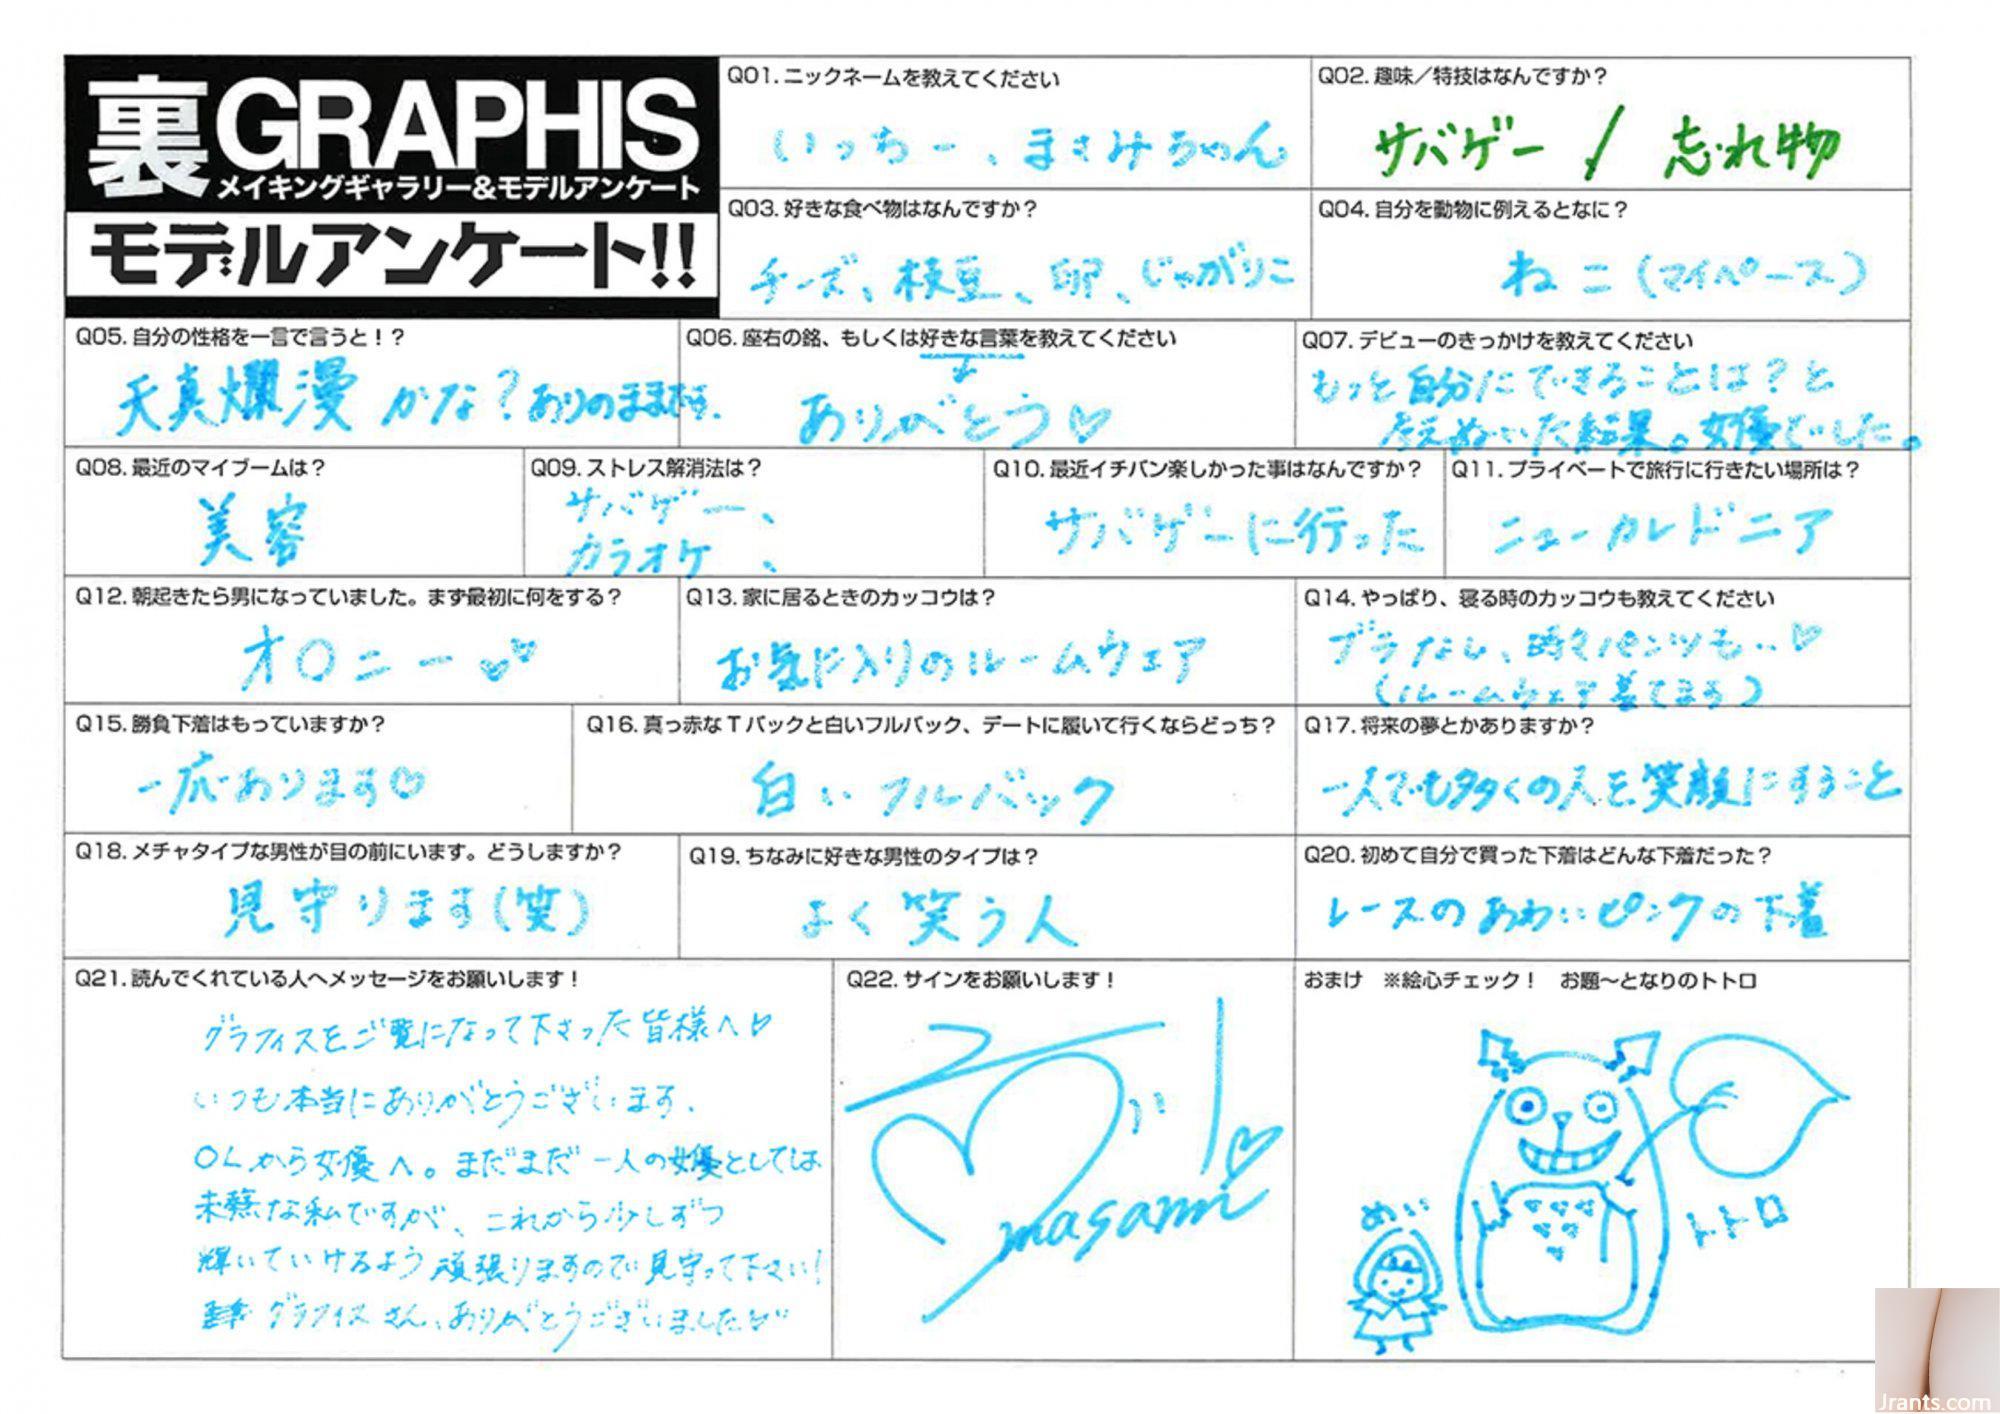 裏GRAPHIS
メイキングギャラリー&モデルアンケート
モデルアンケート!!
Q01.ニックネームを教えてください
いっちー、まさみちゃん
Q02.趣味／特技はなんですか？
サバゲー / 忘れ物
Q03.好きな食べ物はなんですか？
チーズ、枝豆、卵、じゃがりこ
Q04.自分を動物に例えるとなに？
ねこ(マイペース)
Q05.自分の性格を一言で言うと！？
天真爛漫かな？ありのままです.
Q06.座右の銘、もしくは好きな言葉を教えてください
ありがとう♡
Q07.デビューのきっかけを教えてください
もっと自分にできることは？と
考えぬいた結果。女優でした。
Q08.最近のマイブームは？
美容
Q09.ストレス解消法は？
サバゲー、
カラオケ、
Q10.最近イチバン楽しかった事はなんですか？
サバゲーに行った
Q11.プライベートで旅行に行きたい場所は？
ニューカレドニア
Q12.朝起きたら男になっていました。まず最初に何をする？
オ○ニー♡♡
Q13.家に居るときのカッコウは？
お気に入りのルームウェア
Q14.やっぱり、寝る時のカッコウも教えてください
ブラなし、時々パンツも..♡
(ルームウェア着てます)
Q15.勝負下着はもっていますか？
一応あります♡
Q16.真っ赤なTバックと白いフルバック、デートに履いて行くならどっち？
白いフルバック
Q17.将来の夢とかありますか？
一人でも多くの人を笑顔にすること
Q18.メチャタイプな男性が目の前にいます。どうしますか？
見守ります(笑)
Q19.ちなみに好きな男性のタイプは？
よく笑う人
Q20.初めて自分で買った下着はどんな下着だった？
レースのあわいピンクの下着
Q21.読んでくれている人へメッセージをお願いします！
グラフィスをご覧になって下さった皆様へ♡
いつも本当にありがとうございます.
OLから女優へ。まだまだ一人の女優としては
未熟な私ですが、これから少しずつ
輝いていけるよう頑張りますので見守って下さい!
グラフィスさん、ありがとうございました♡
Q22.サインをお願いします！
masami
おまけ ※絵心チェック！ お題～となりのトトロ
めい
トトロ
Jrants.com